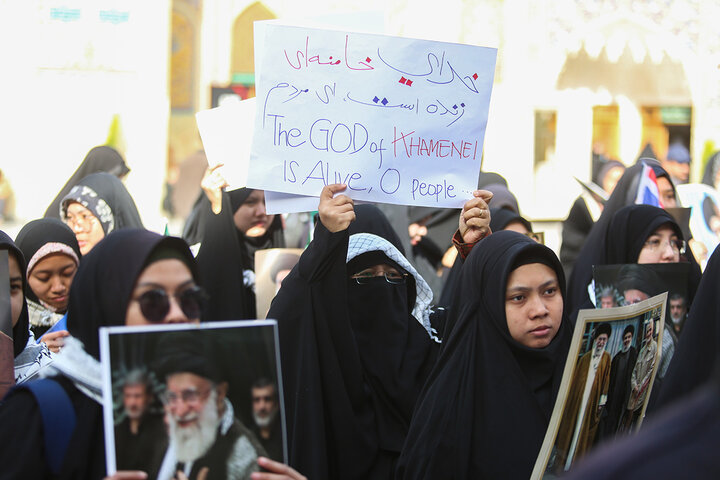 خدای خامنه‌ای
زنده است، ای مردم
The GOD of KHAMENEI
Is Alive, O people...